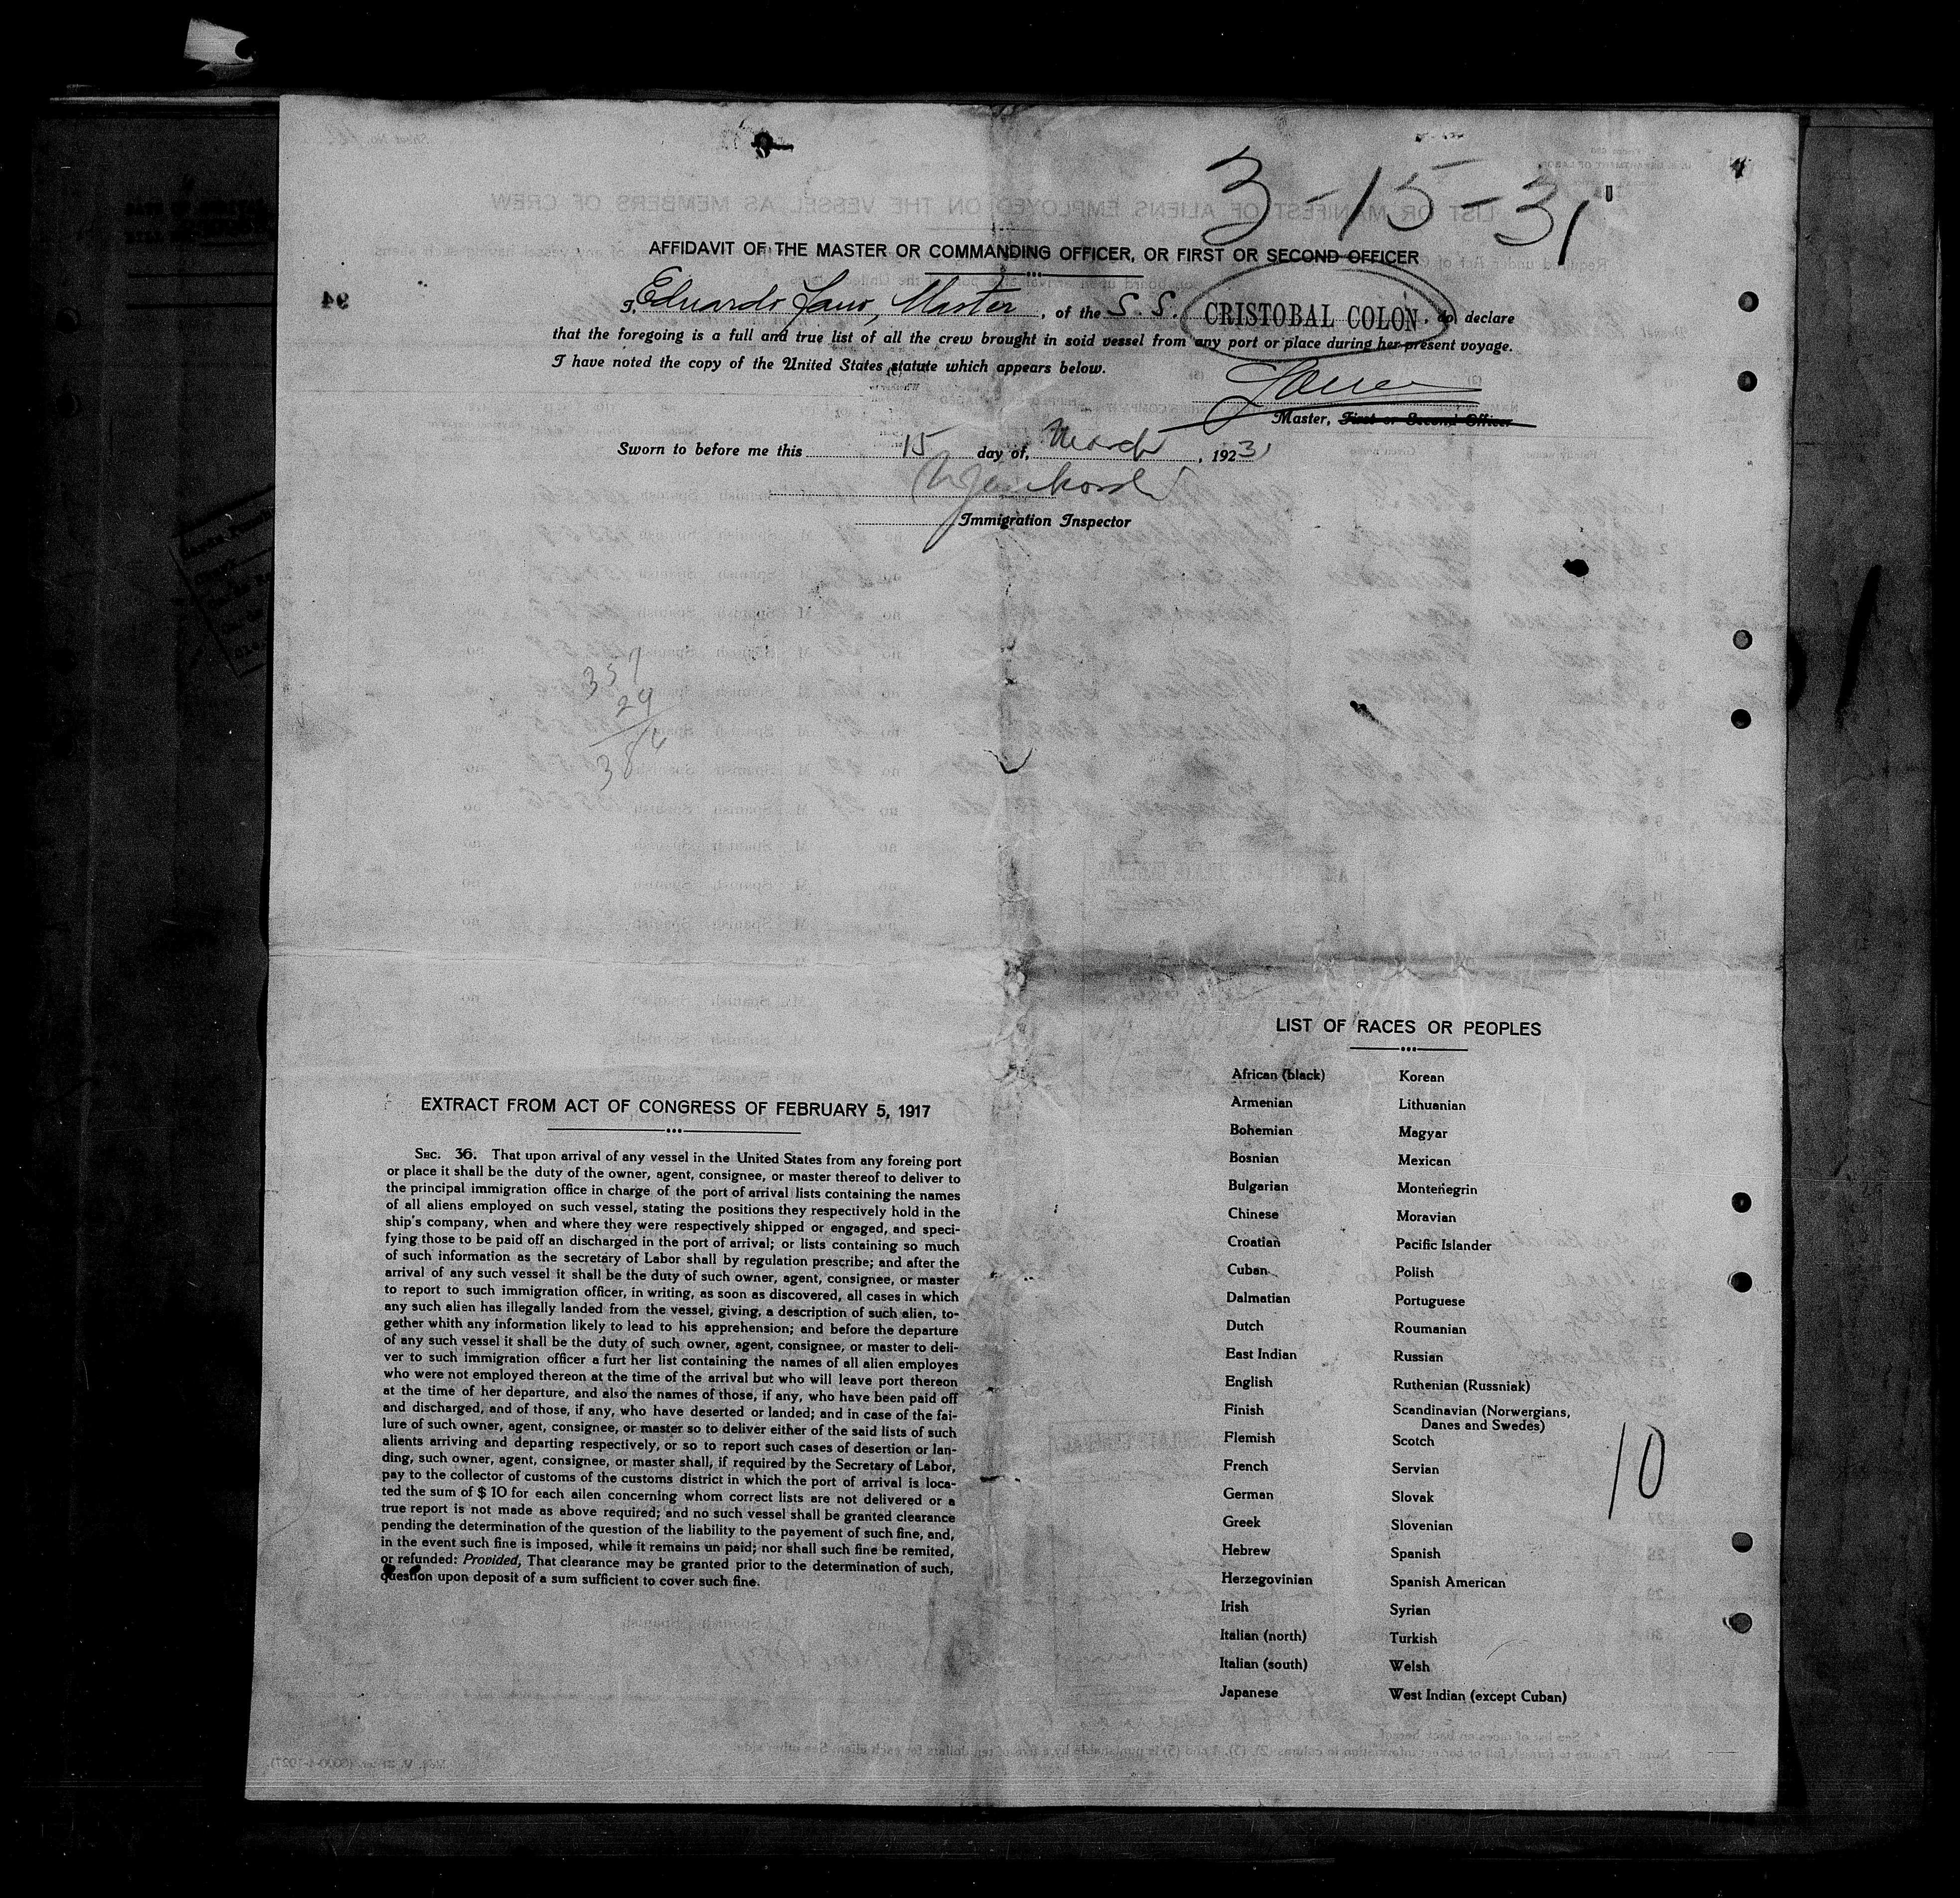 3-15-31
AFFIDAVIT OF THE MASTER OR COMMANDING OFFICER, OR FIRST OR SECOND OFFICER
I, Eduardo Fano, Master, of the S. S. CRISTOBAL COLON, do declare
that the foregoing is a full and true list of all the crew brought in soid vessel from any port or place during her present voyage.
I have noted the copy of the United States statute which appears below.
Master, First or Second Officer
Sworn to before me this 15 day of, March, 19231
Immigration Inspector
357
29
386
EXTRACT FROM ACT OF CONGRESS OF FEBRUARY 5, 1917
SEC. 36. That upon arrival of any vessel in the United States from any foreing port
or place it shall be the duty of the owner, agent, consignee, or master thereof to deliver to
the principal immigration office in charge of the port of arrival lists containing the names
of all aliens employed on such vessel, stating the positions they respectively hold in the
ship's company, when and where they were respectively shipped or engaged, and speci-
fying those to be paid off an discharged in the port of arrival; or lists containing so much
of such information as the secretary of Labor shall by regulation prescribe; and after the
arrival of any such vessel it shall be the duty of such owner, agent, consignee, or master
to report to such immigration officer, in writing, as soon as discovered, all cases in which
any such alien has illegally landed from the vessel, giving, a description of such alien, to-
gether whith any information likely to lead to his apprehension; and before the departure
of any such vessel it shall be the duty of such owner, agent, consignee, or master to deli-
ver to such immigration officer a furt her list containing the names of all alien employes
who were not employed thereon at the time of the arrival but who will leave port thereon
at the time of her departure, and also the names of those, if any, who have been paid off
and discharged, and of those, if any, who have deserted or landed; and in case of the fai-
lure of such owner, agent, consignee, or master so to deliver either of the said lists of such
alients arriving and departing respectively, or so to report such cases of desertion or lan-
ding, such owner, agent, consignee, or master shall, if required by the Secretary of Labor,
pay to the collector of customs of the customs district in which the port of arrival is loca-
ted the sum of $ 10 for each ailen concerning whom correct lists are not delivered or a
true report is not made as above required; and no such vessel shall be granted clearance
pending the determination of the question of the liability to the payement of such fine, and,
in the event such fine is imposed, while it remains un paid; nor shall such fine be remited,
or refunded: Provided, That clearance may be granted prior to the determination of such,
question upon deposit of a sum sufficient to cover such fine.
LIST OF RACES OR PEOPLES
African (black)
Armenian
Bohemian
Bosnian
Bulgarian
Chinese
Croatian
Cuban
Dalmatian
Dutch
East Indian
English
Finish
Flemish
French
German
Greek
Hebrew
Herzegovinian
Irish
Italian (north)
Italian (south)
Japanese
Korean
Lithuanian
Magyar
Mexican
Montenegrin
Moravian
Pacific Islander
Polish
Portuguese
Roumanian
Russian
Ruthenian (Russniak)
Scandinavian (Norwergians,
Danes and Swedes)
Scotch
Servian
Slovak
Slovenian
Spanish
Spanish American
Syrian
Turkish
Welsh
West Indian (except Cuban)
10